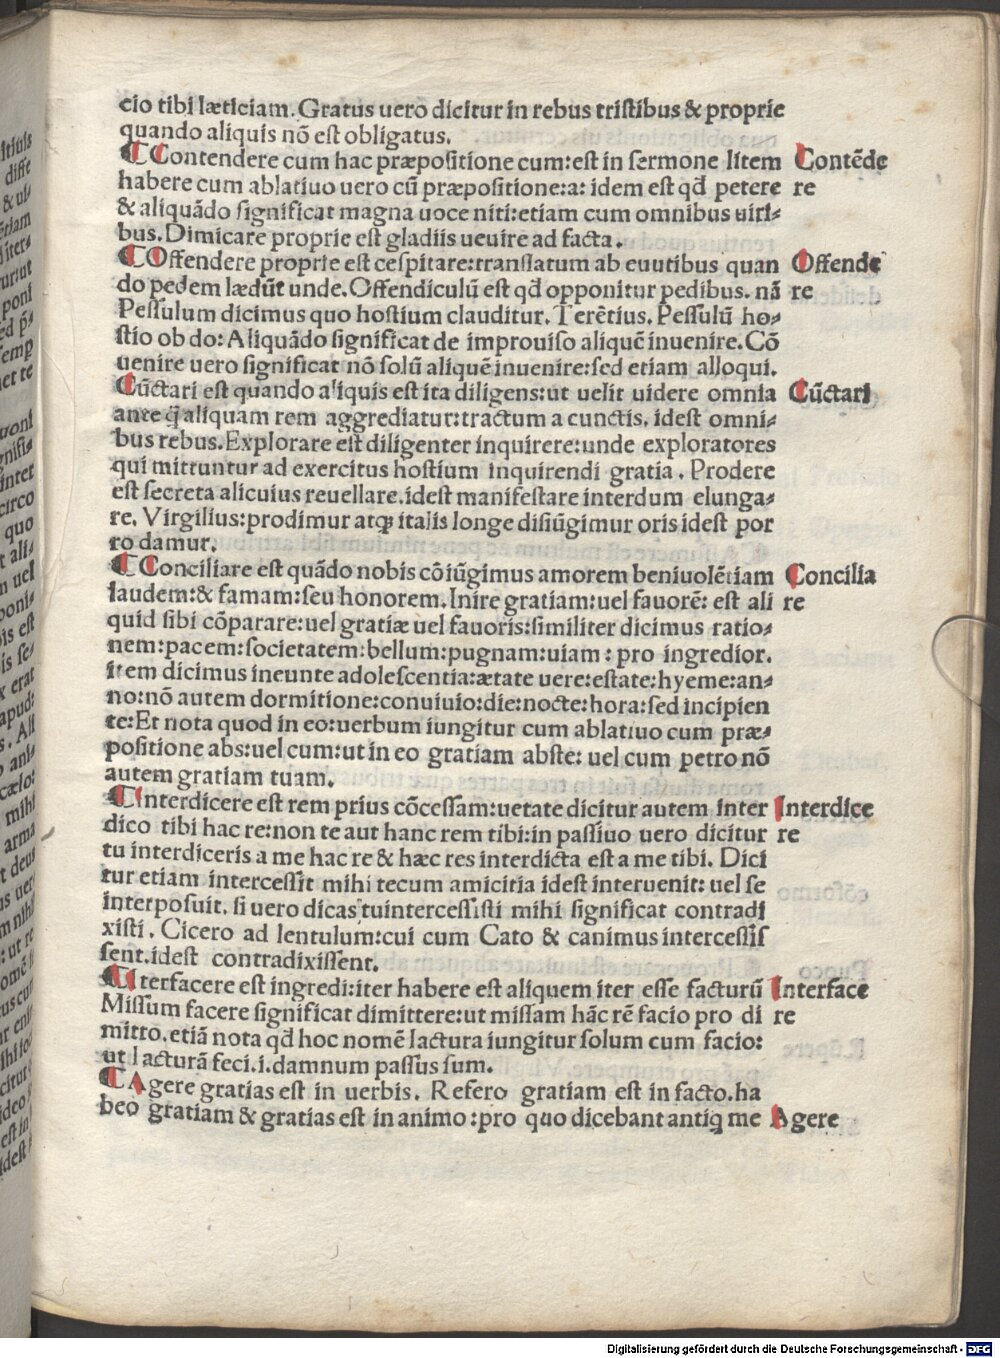 cio tibi læticiam. Gratus uero dicitur in rebus tristibus & proprie
quando aliquis nō est obligatus.
¶ Contendere cum hac præpositione cum: est in sermone litem
habere cum ablatiuo uero cū præpositione: a: idem est qd petere
& aliquãdo significat magna uoce niti: etiam cum omnibus uiri-
bus. Dimicare proprie est gladiis ueuire ad facta.
Contẽde
re
¶ Offendere proprie est cespitare: translatum ab euutibus quan
do pedem lædūt unde. Offendiculū est qd opponitur pedibus. nã
Pessulum dicimus quo hostium clauditur. Terētius. Pessulū ho-
stio ob do: Aliquãdo significat de improuiso aliquē inuenire. Cō
uenire uero significat nō solū aliquē inuenire: sed etiam alloqui.
Offende
re
Cūctari est quando aliquis est ita diligens: ut uelit uidere omnia
ante q̃ aliquam rem aggrediatur: tractum a cunctis. idest omni-
bus rebus. Explorare est diligenter inquirere: unde exploratores
qui mittuntur ad exercitus hostium inquirendi gratia. Prodere
est secreta alicuius reuellare. idest manifestare interdum elunga-
re. Virgilius: prodimur atqꝫ italis longe disiūgimur oris idest por
ro damur.
Cūctari
¶ Conciliare est quãdo nobis cōiūgimus amorem beniuolētiam
laudem: & famam: seu honorem. Inire gratiam: uel fauorē: est ali
quid sibi cōparare: uel gratiæ uel fauoris: similiter dicimus ratio-
nem: pacem: societatem: bellum: pugnam: uiam: pro ingredior.
item dicimus ineunte adolescentia: ætate uere: estate: hyeme: an-
no: nō autem dormitione: conuiuio: die: nocte: hora: sed incipien
te: Et nota quod in eo: uerbum iungitur cum ablatiuo cum præ-
positione abs: uel cum: ut in eo gratiam abste: uel cum petro nō
autem gratiam tuam.
Concilia
re
¶ Interdicere est rem prius cōcessam: uetate dicitur autem inter
dico tibi hac re: non te aut hanc rem tibi: in passiuo uero dicitur
tu interdiceris a me hac re & hæc res interdicta est a me tibi. Dici
tur etiam intercessit mihi tecum amicitia idest interuenit: uel se
interposuit. si uero dicas tuintercessisti mihi significat contradi
xisti. Cicero ad lentulum: cui cum Cato & canimus intercessis
sent. idest contradixissent.
Interdice
re
¶ Iterfacere est ingredi: iter habere est aliquem iter esse facturū
Missum facere significat dimittere: ut missam hãc rē facio pro di
mitto. etiã nota qd hoc nomē lactura iungitur solum cum facio:
ut lacturã feci. i. damnum passus sum.
Interface
re
¶ Agere gratias est in uerbis. Refero gratiam est in facto. ha
beo gratiam & gratias est in animo: pro quo dicebant antiq me
Agere
Digitalisierung gefördert durch die Deutsche Forschungsgemeinschaft - DFG